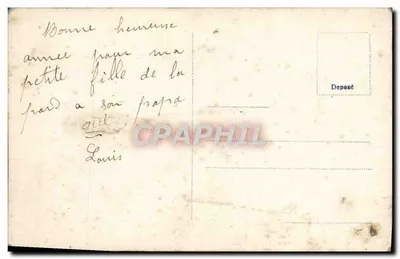 Bonne heureuse
année pour ma
petite fille de la
pard a son papa
oui
Louis
Deposé
CPAPHIL